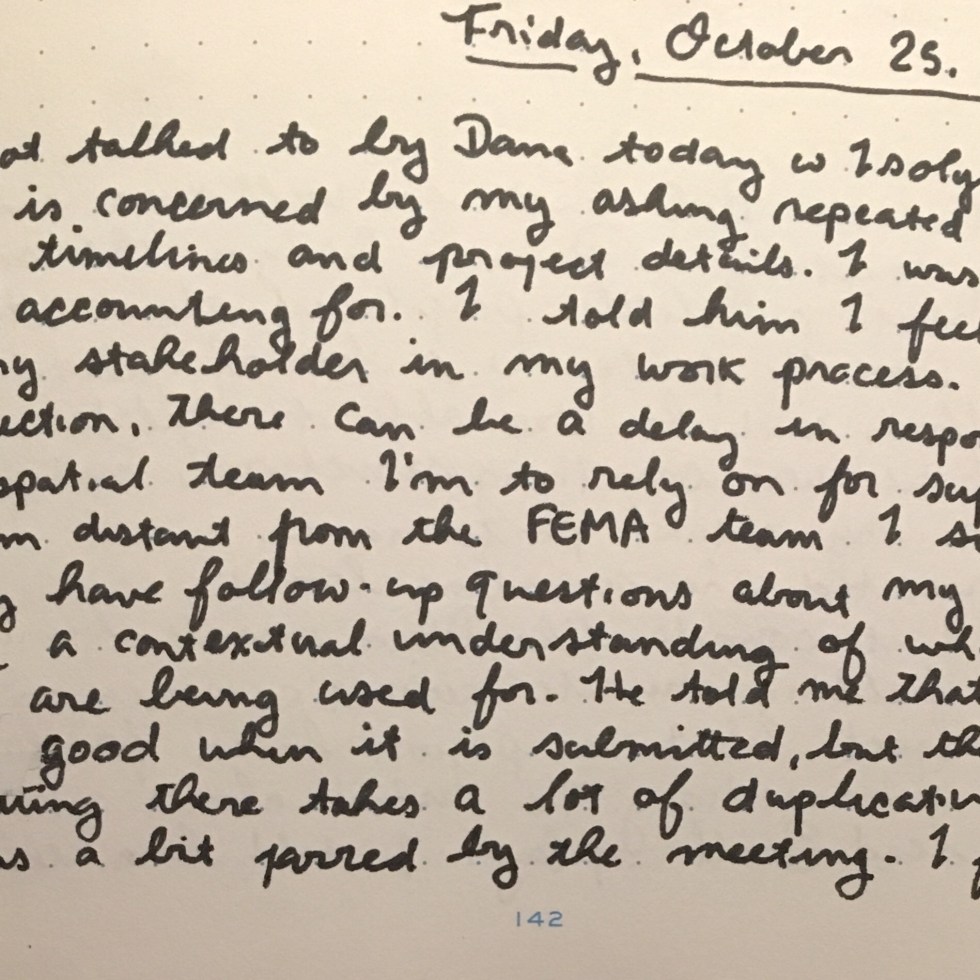 Friday, October 25.
at talked to by Dane today w Isoly
is concerned by my asking repeated
timelines and project details. I was
accounting for. I told him I feel
ny stakeholder in my work process.
ection, there can be a delay in respo
spatial team I'm to rely on for sup
m distant from the FEMA team I s
g have follow-up questions about my
a contextual understanding of wh
are being used for. He told me that
good when it is submitted, but th
uting there takes a lot of duplicatin
is a bit jarred by the meeting. I f
142